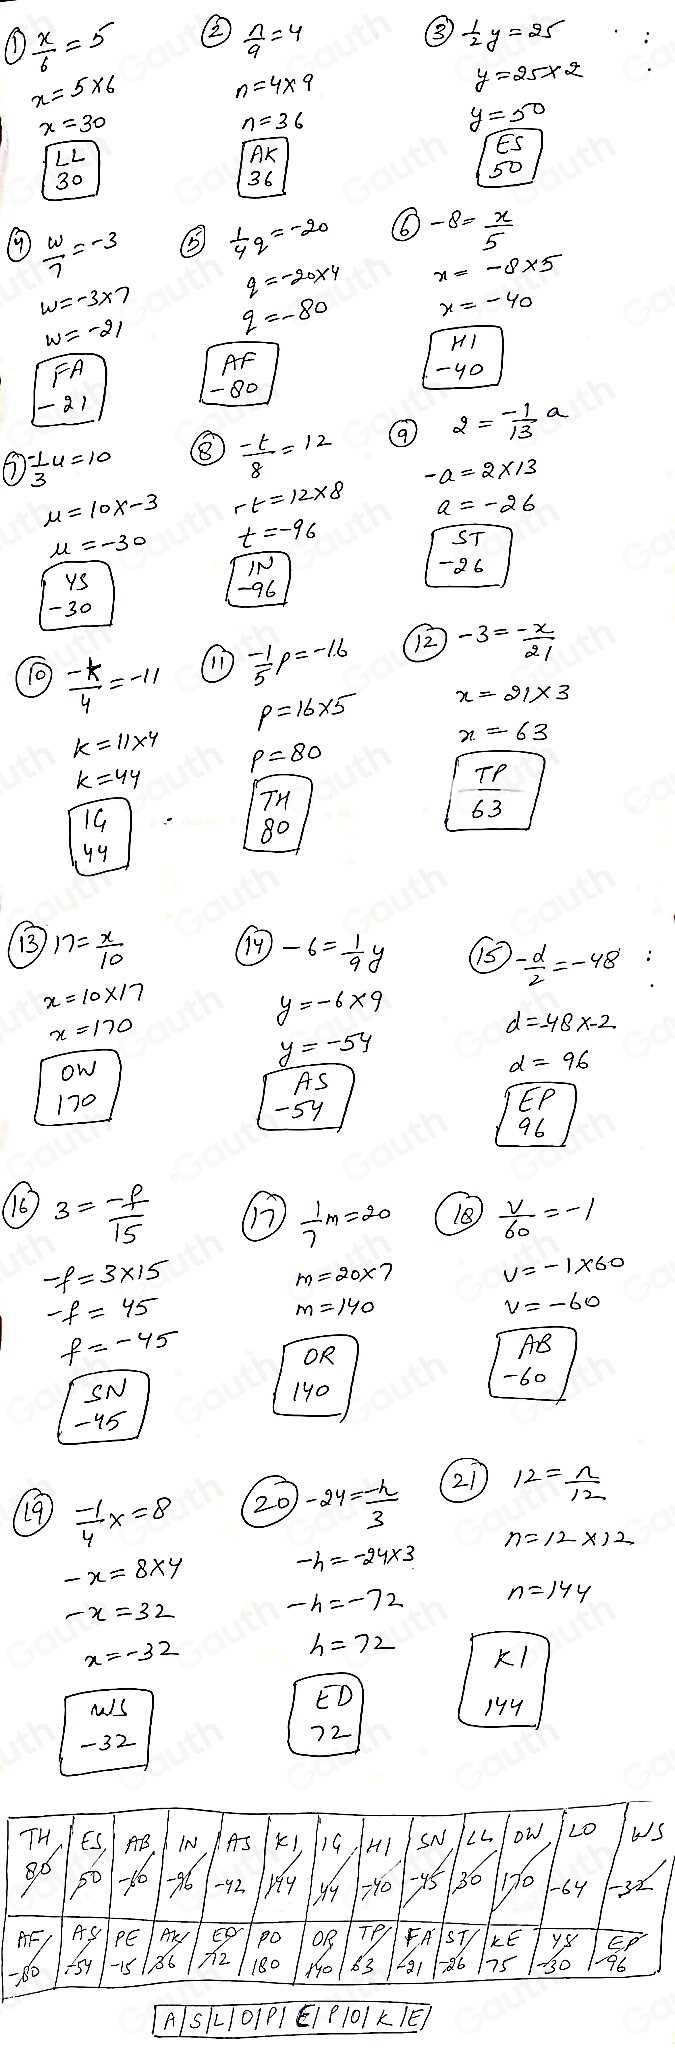 ① x/6 = 5
x = 5×6
x = 30
LL
30
② n/9 = 4
n = 4×9
n = 36
AK
36
③ 1/2 y = 25
y = 25×2
y = 50
ES
50
④ w/7 = -3
w = -3×7
w = -21
FA
-21
⑤ 1/4 q = -20
q = -20×4
q = -80
AF
-80
⑥ -8 = x/5
x = -8×5
x = -40
HI
-40
⑦ -1/3 u = 10
u = 10×-3
u = -30
YS
-30
⑧ -t/8 = 12
-t = 12×8
t = -96
IN
-96
⑨ 2 = -1/13 a
-a = 2×13
a = -26
ST
-26
⑩ -k/4 = -11
k = 11×4
k = 44
IG
44
⑪ -1/5 p = -16
p = 16×5
p = 80
TH
80
⑫ -3 = -x/21
x = 21×3
x = 63
TP
63
⑬ 17 = x/10
x = 10×17
x = 170
OW
170
⑭ -6 = 1/9 y
y = -6×9
y = -54
AS
-54
⑮ -d/2 = -48
d = -48×-2
d = 96
EP
96
⑯ 3 = -f/15
-f = 3×15
-f = 45
f = -45
SN
-45
⑰ 1/7 m = 20
m = 20×7
m = 140
OR
140
⑱ v/60 = -1
v = -1×60
v = -60
AB
-60
⑲ -1/4 x = 8
-x = 8×4
-x = 32
x = -32
WS
-32
⑳ -24 = -h/3
-h = -24×3
-h = -72
h = 72
ED
72
㉑ 12 = n/12
n = 12×12
n = 144
KI
144
TH ES AB IN AS KI IG HI SN LL OW LO WS
80 50 -60 -96 -42 144 44 -40 -45 30 170 -64 -32
AF AS PE AK ED PO OR TP FA ST KE YS EP
-80 -54 -15 36 72 180 140 63 -21 -26 75 -30 -96
A S L O P E P O K E